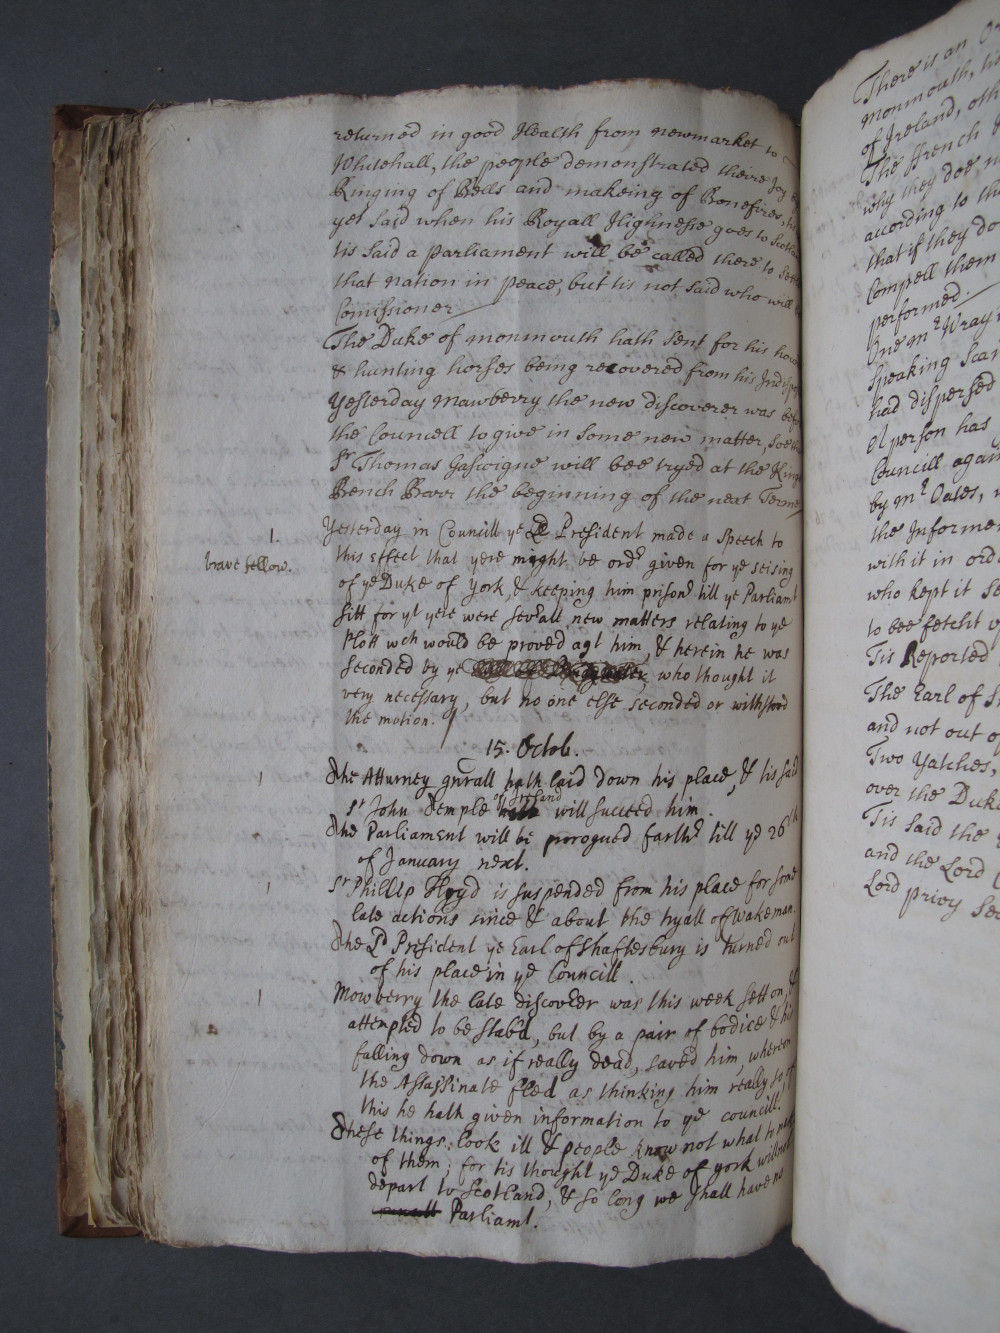 returned in good Health from newmarket to
Whitehall, the people demonstrated theire Joy
Ringing of Bells and makeing of Bonefires,
yet said when his Royall Highnesse goes to Scotla
tis said a parliament will be called there to settle
that nation in peace, but tis not said who will
Comissioner
The Duke of monmouth hath sent for his
& hunting horses being recovered from his Indispo
Yesterday mawberry the new discoverer was bef
the Councell to give in some new matter, soe
Sr Thomas Gascoigne will bee tryed at the King
Bench Barr the beginning of the next Terme
Yesterday in Councill ye Ld President made a speech to
this effect that yere might be ordr given for ye seising
of ye Duke of York, & keeping him prisonr till ye Parliamt
sitt for yt yere were sevrall new matters relating to ye
Plott wch would be proved agt him, & herein he was
seconded by ye , who thought it
very necessary, but no one else seconded or withstood
the motion.
1.
brave fellow.
15. Octob.
The Atturney gnrall hath laid down his place, & tis said
Sr John Temple of Ireland will succeed him.
The Parliament will be prorogued farthr till ye 26th
of January next.
Sr Phillip Floyd is suspended from his place for some
late actions since & about the tryall of Wakeman.
The Ld President ye Earl of Shaftesbury is turned out
of his place in ye Councill.
Mowberry the late discoverer was this week sett on, &
attempted to be stab'd, but by a pair of bodice & his
falling down as if really dead, saved him, whereon
the Assassinate fled as thinking him really so, of
this he hath given information to ye councill.
These things look ill & people know not what to make
of them; for tis thought ye Duke of york will not
depart to Scotland, & so long we shall have no
Parliamt.
There is an Or
monmouth, his
of Ireland, oth
The French
why they doe n
according to the
that if they do
Compell them
performed.
One mr Wray
speaking Scan
had dispersed
A person has
Councill again
by mr Oates,
the Informer
with it in ord
who kept it se
to bee fetcht
Tis Reported
The Earl of
and not out o
Two Yatches,
over the Duke
Tis said the
and the Lord
Lord privy Se